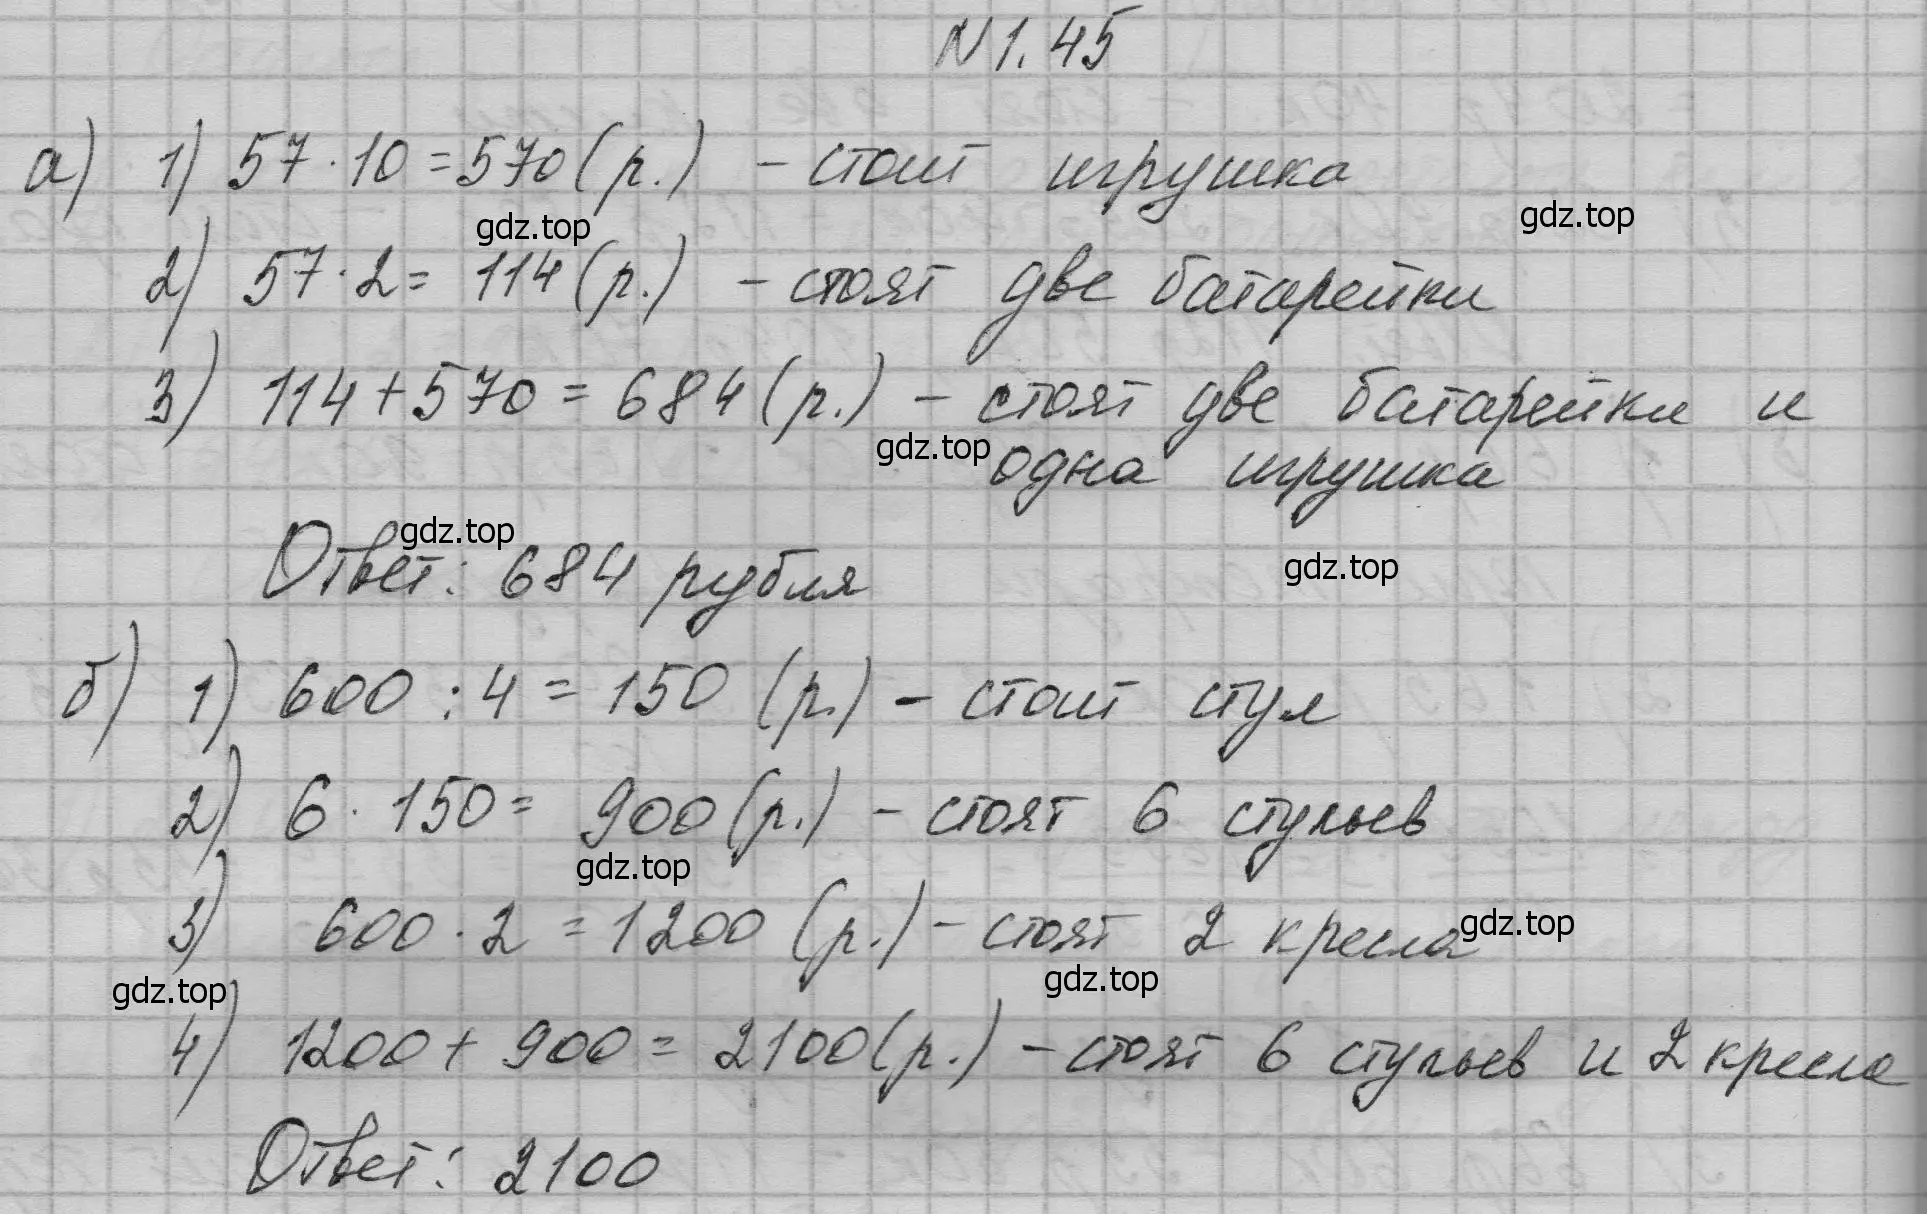 N 1.45
а) 1) 57 · 10 = 570 (р.) - стоит игрушка
gdz.top
gdz.top
2) 57 · 2 = 114 (р.) - стоят две батарейки
3) 114 + 570 = 684 (р.) - стоят две батарейки и
gdz.top
одна игрушка
gdz.top
Ответ: 684 рубля
gdz.top
б) 1) 600 : 4 = 150 (р.) - стоит стул
2) 6 · 150 = 900 (р.) - стоят 6 стульев
gdz.top
3) 600 · 2 = 1200 (р.) - стоят 2 кресла
gdz.top
gdz.top
gdz.top
4) 1200 + 900 = 2100 (р.) - стоят 6 стульев и 2 кресла
Ответ: 2100